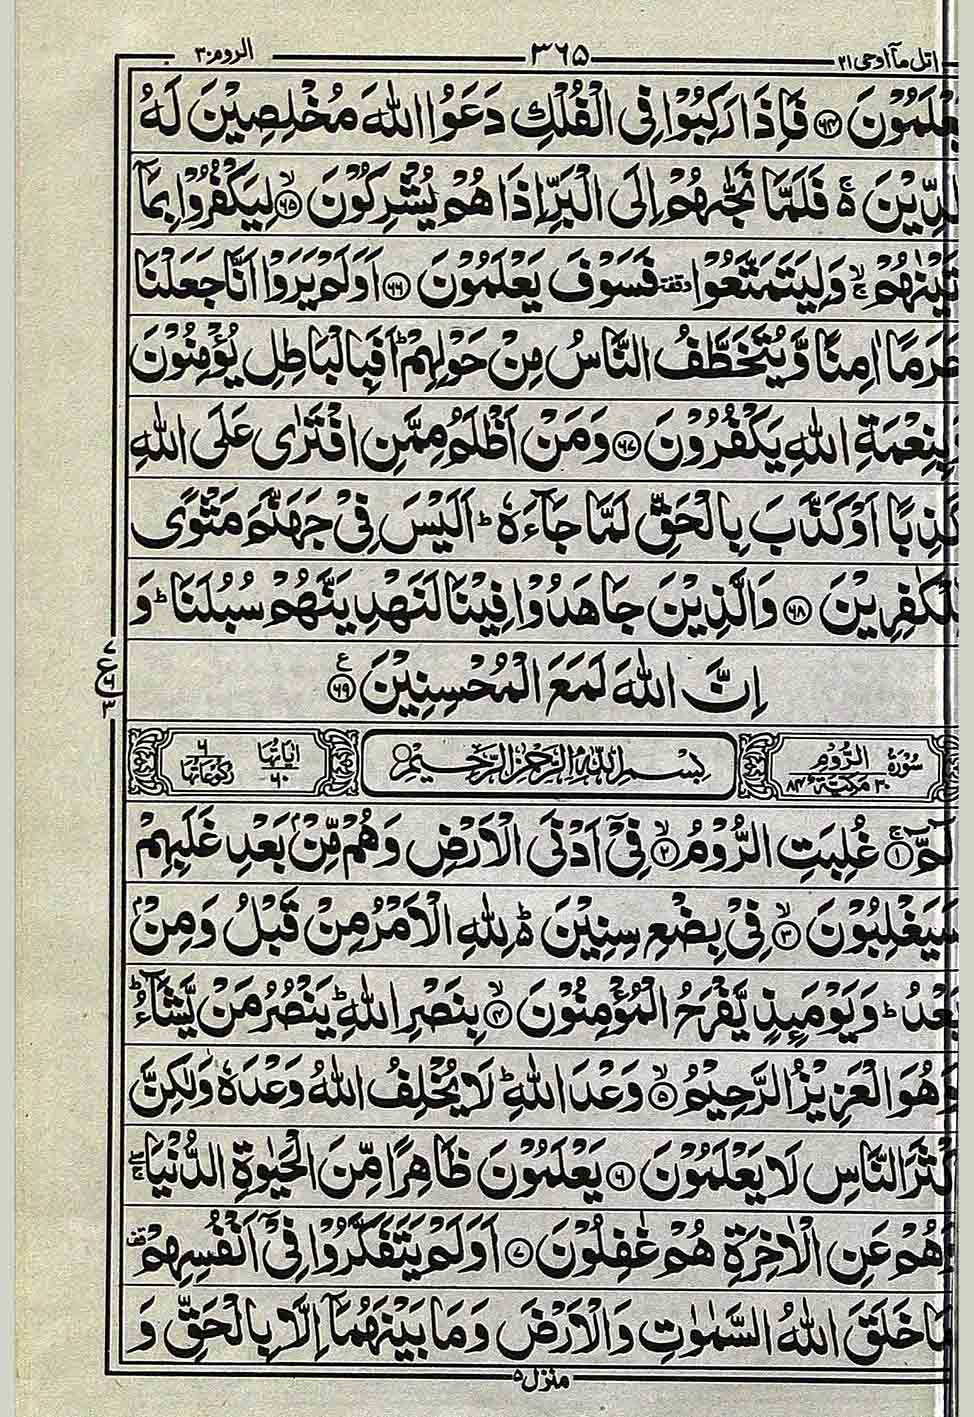 اتل مآ اوحی ۲۱ ۳۶۵ الروم ۳۰
يَعْلَمُوْنَ ۶۴ فَاِذَا رَكِبُوْا فِی الْفُلْكِ دَعَوُا اللّٰهَ مُخْلِصِيْنَ لَهُ
الدِّيْنَ ۚ فَلَمَّا نَجّٰىهُمْ اِلَى الْبَرِّ اِذَا هُمْ يُشْرِكُوْنَ ۶۵ۙ لِيَكْفُرُوْا بِمَآ
اٰتَيْنٰهُمْ ۚۙ وَلِيَتَمَتَّعُوْا وقفة فَسَوْفَ يَعْلَمُوْنَ ۶۶ اَوَلَمْ يَرَوْا اَنَّا جَعَلْنَا
حَرَمًا اٰمِنًا وَّيُتَخَطَّفُ النَّاسُ مِنْ حَوْلِهِمْ ؕ اَفَبِالْبَاطِلِ يُؤْمِنُوْنَ
وَبِنِعْمَةِ اللّٰهِ يَكْفُرُوْنَ ۶۷ وَمَنْ اَظْلَمُ مِمَّنِ افْتَرٰى عَلَى اللّٰهِ
كَذِبًا اَوْ كَذَّبَ بِالْحَقِّ لَمَّا جَآءَهٗ ؕ اَلَيْسَ فِیْ جَهَنَّمَ مَثْوًى
لِّلْكٰفِرِيْنَ ۶۸ وَالَّذِيْنَ جَاهَدُوْا فِيْنَا لَنَهْدِيَنَّهُمْ سُبُلَنَا ؕ وَ
اِنَّ اللّٰهَ لَمَعَ الْمُحْسِنِيْنَ ۶۹ ع
۷ ع ۶ ۳
سُوْرَةُ الرُّوْمِ ۳۰ مَكِّيَّةٌ ۸۴ بِسْمِ اللّٰهِ الرَّحْمٰنِ الرَّحِيْمِ اٰيَاتُهَا ۶۰ رُكُوْعَاتُهَا ۶
الٓمّٓ ۱ۚ غُلِبَتِ الرُّوْمُ ۲ۙ فِیْٓ اَدْنَى الْاَرْضِ وَهُمْ مِّنْۢ بَعْدِ غَلَبِهِمْ
سَيَغْلِبُوْنَ ۳ۙ فِیْ بِضْعِ سِنِيْنَ ؕ لِلّٰهِ الْاَمْرُ مِنْ قَبْلُ وَمِنْۢ
بَعْدُ ؕ وَيَوْمَئِذٍ يَّفْرَحُ الْمُؤْمِنُوْنَ ۴ۙ بِنَصْرِ اللّٰهِ ؕ يَنْصُرُ مَنْ يَّشَآءُ ؕ
وَهُوَ الْعَزِيْزُ الرَّحِيْمُ ۵ۙ وَعْدَ اللّٰهِ ؕ لَا يُخْلِفُ اللّٰهُ وَعْدَهٗ وَلٰكِنَّ
اَكْثَرَ النَّاسِ لَا يَعْلَمُوْنَ ۶ يَعْلَمُوْنَ ظَاهِرًا مِّنَ الْحَيٰوةِ الدُّنْيَا
وَهُمْ عَنِ الْاٰخِرَةِ هُمْ غٰفِلُوْنَ ۷ اَوَلَمْ يَتَفَكَّرُوْا فِیْٓ اَنْفُسِهِمْ قف
مَا خَلَقَ اللّٰهُ السَّمٰوٰتِ وَالْاَرْضَ وَمَا بَيْنَهُمَآ اِلَّا بِالْحَقِّ وَ
منزل ۵